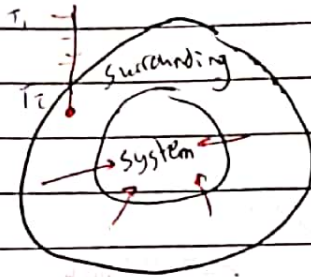 T₁
surrounding
T₂
system